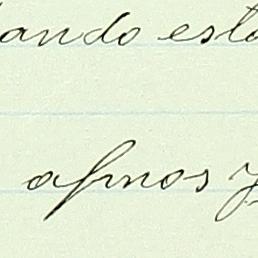 ando esta
afmos y